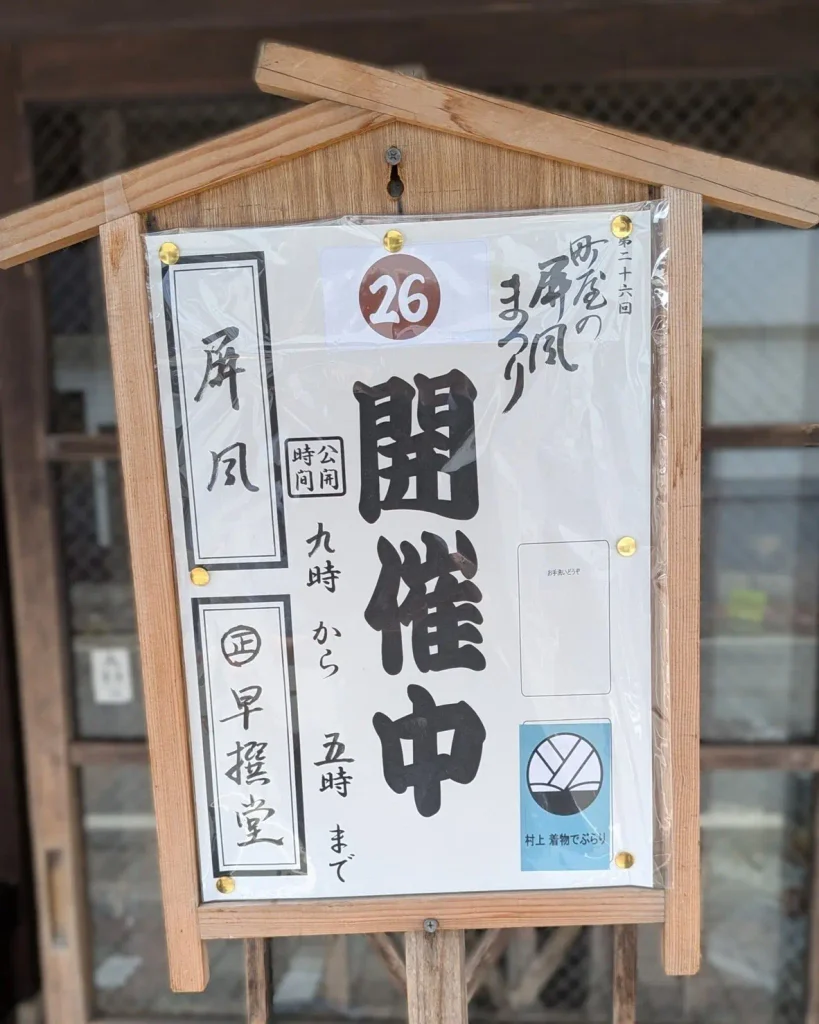 第二十六回
町屋の
屏風
まつり
26
開催中
公開
時間
九時から五時まで
屏風
㊣早撰堂
お手洗いどうぞ
村上 着物でぶらり